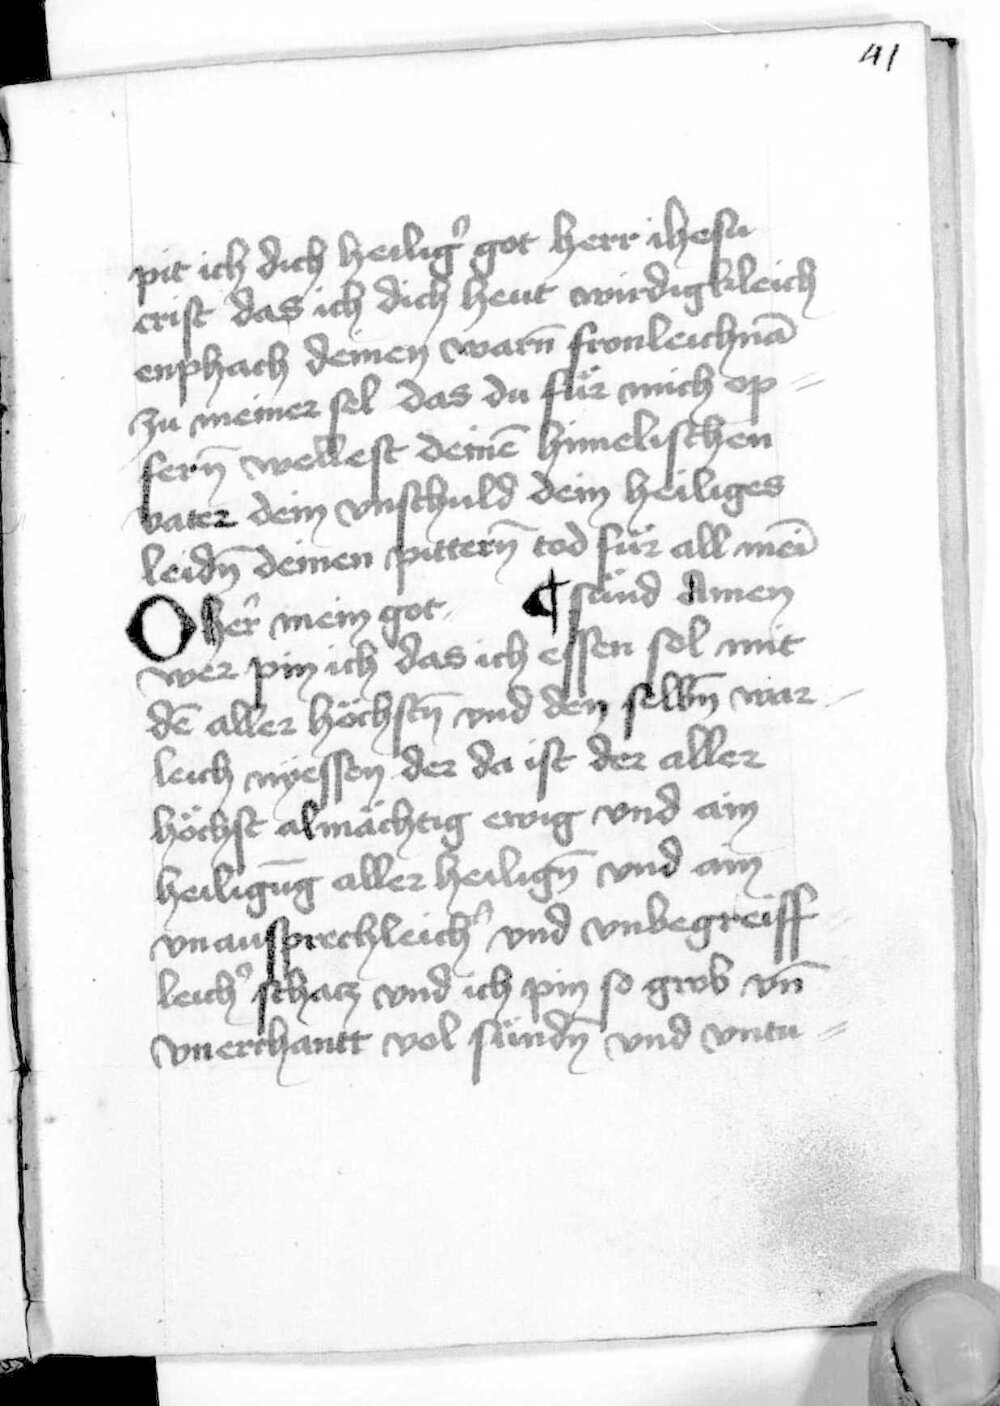 41
pit ich dich heilig᷑ got herr ihesu
crist das ich dich heut wirdigkleich
enphach deinen warn̄ fronleichnā
zu meiner sel das du für mich op=
fern̄ wellest deinē himelischen
vater dein vnschuld dein heiliges
leidn̄ deinen pittern̄ tod für all meī
¶ sünd Amen
O her᷑ mein got
wer pin ich das ich essen sol mit
dē aller höchstn̄ vnd den selbn̄ war-
leich nyessen der da ist der aller
höchst almächtig ewig vnd ain
heiligūg aller heilign̄ vnd ain
vnausprechleich᷑ vnd vnbegreiff=
leich᷑ schacz vnd ich pin so grob vn̄
vnerchantt vol sündn̄ vnd vntu=